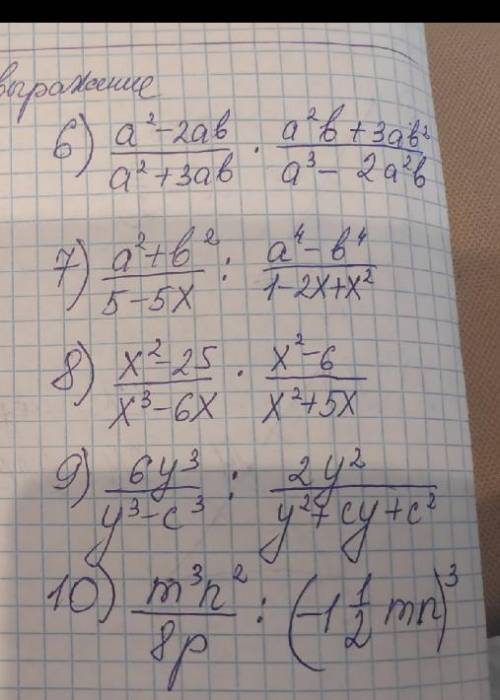 выражение
6) (a² - 2ab)/(a² + 3ab) · (a²b + 3ab²)/(a³ - 2a²b)
7) (a² + b²)/(5 - 5x) : (a⁴ - b⁴)/(1 - 2x + x²)
8) (x² - 25)/(x³ - 6x) · (x² - 6)/(x² + 5x)
9) 6y³/(y³ - c³) : 2y²/(y² + cy + c²)
10) m³n²/8p : (-1 1/2 mn)³